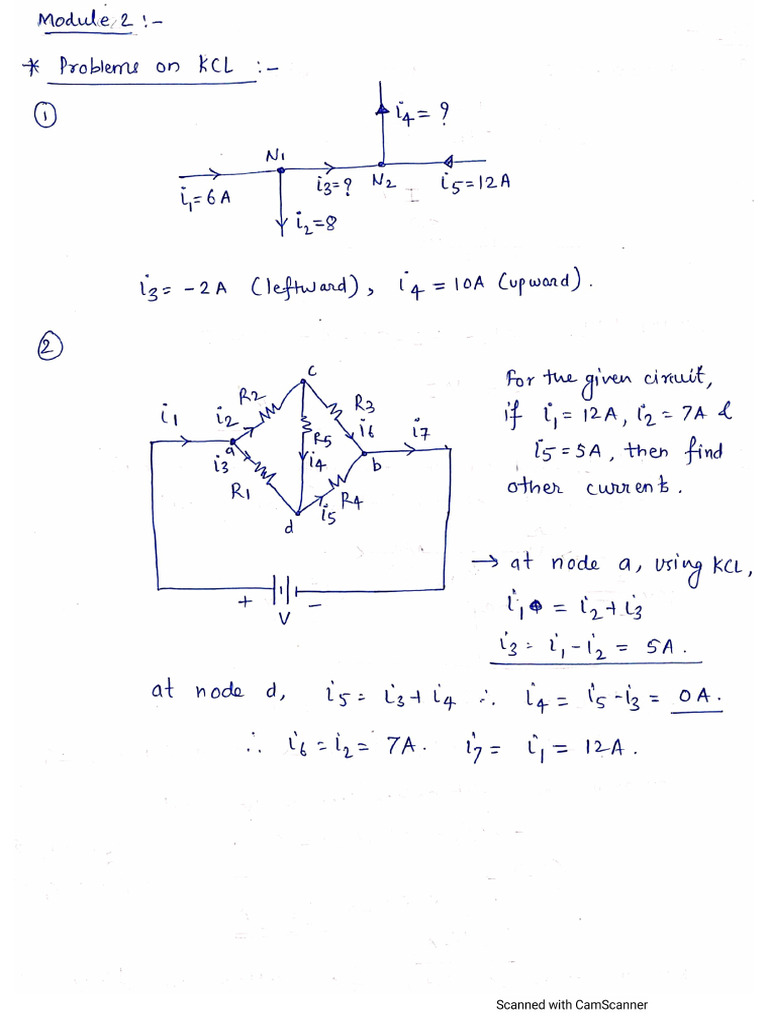 Module 2 :-
* Problems on KCL :-
①
i4 = ?
N1
i3=? N2 i5=12A
i1=6A
i2=8
i3= -2A (leftward), i4 = 10A (upward).
②
c
R2 R3
i1 i2 i6 i7
a R5 b
i3 i4
R1 R4
i5
d
+ -
V
for the given circuit,
if i1 = 12A, i2 = 7A &
i5 = 5A, then find
other currents.
→ at node a, using KCL,
i1 = i2 + i3
i3 = i1 - i2 = 5A.
at node d, i5 = i3 + i4 ∴ i4 = i5 - i3 = 0A.
∴ i6 = i2 = 7A. i7 = i1 = 12A.
Scanned with CamScanner